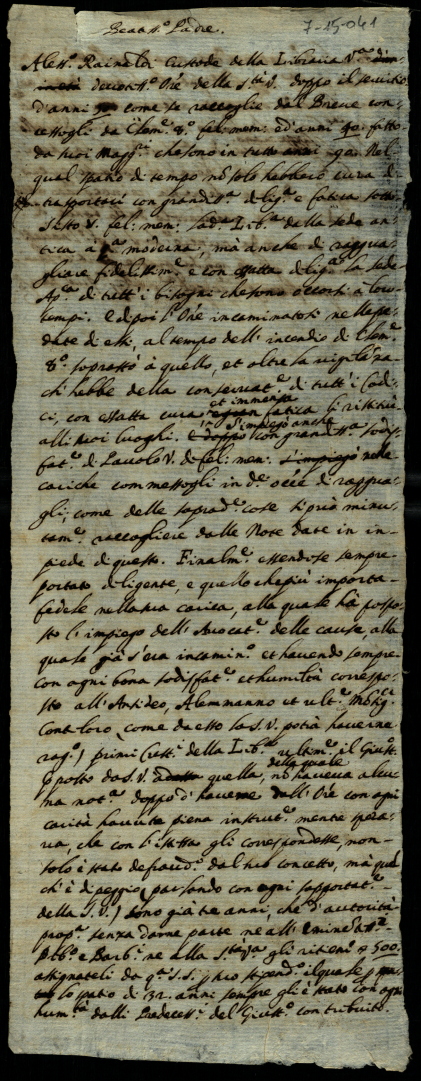 7-15-041
Beat.mo Padre.
Aless.o Rainaldi Custode della Libraria V.na
devotiss.o Ore della S.tà V. doppo il servitio
d'anni come si raccoglie dal Breve con-
cessogli da Clem.e 8.o fel: mem: ed'anni 40. fatto
da suoi Magg.ri che sono in tutto anni 90. Nel
qual spatio di tempo nõ solo hebbero cura di
trasportarsi con grandiss.a dilig.a e fatica sotto
Sisto V. fel: mem: la d.a Lib.a dalla sede an-
tica à moderna, mà anche di raggua-
gliare fidelissim.e e con essatta dilig.a la Sede
Ap.ca di tutt'i bisogni che sono occorsi a loro
tempi. E dipoi l'Ore incaminatosi nelle
date di essi, al tempo dell'incendio di Clem.e
8.o soprastò à quello, et oltre la vigil.a
ch'hebbe della conservat.e di tutt'i Codi-
ci, con essatta cura et immensa fatica li restituì
alli suoi luoghi. s'impiegò anche con grandiss.a sodis-
fat.e di Pavolo V. di fel: mem: nelle
cariche commessogli in d.o di raggua-
gli, come delle soprad.e cose si può minu-
tam.e raccogliere dalle Note date in in
piede di questo. Finalm.e essendose sempre
portato diligente, e quello che più importa
fedele nella sua carica, alla quale hà pospo-
sto l'impiego dell'Avocat.e delle cause, alla
quale già s'era incamin.o et havendo sempre
con ogni bona sodisfat.e et humiltà correspo-
sto all'Antideo, Alemmanno et ult.o
Conteloro (come da esso la S.V. potrà haverne
rag.e) primi Cust.i della Lib.a ultim.e il Giust.o
posto da S.V. quella, della quale nõ haveva alcu-
na not.a doppo d'haverne dall'Ore con ogni
carità havuta piena instrut.e mente spera-
va, che con l'istessa gli correspondesse, non-
solo è stato defraud.o dal suo concetto, mà quel
ch'è di peggio (parlando con ogni sopportat.e
della S.V.) sono già tre anni, che d'autorità
prop.a senza darne parte ne all'Eminentiss.o
e Barb.o ne alla S.tà V.a gli ritiene 500.
assignateli da q.a S.S. suo stipend.o il quale
lo spatio di 32. anni sempre gli è stato con ogni
hum.tà dalli Predecess.i del Giust.o contribuito.